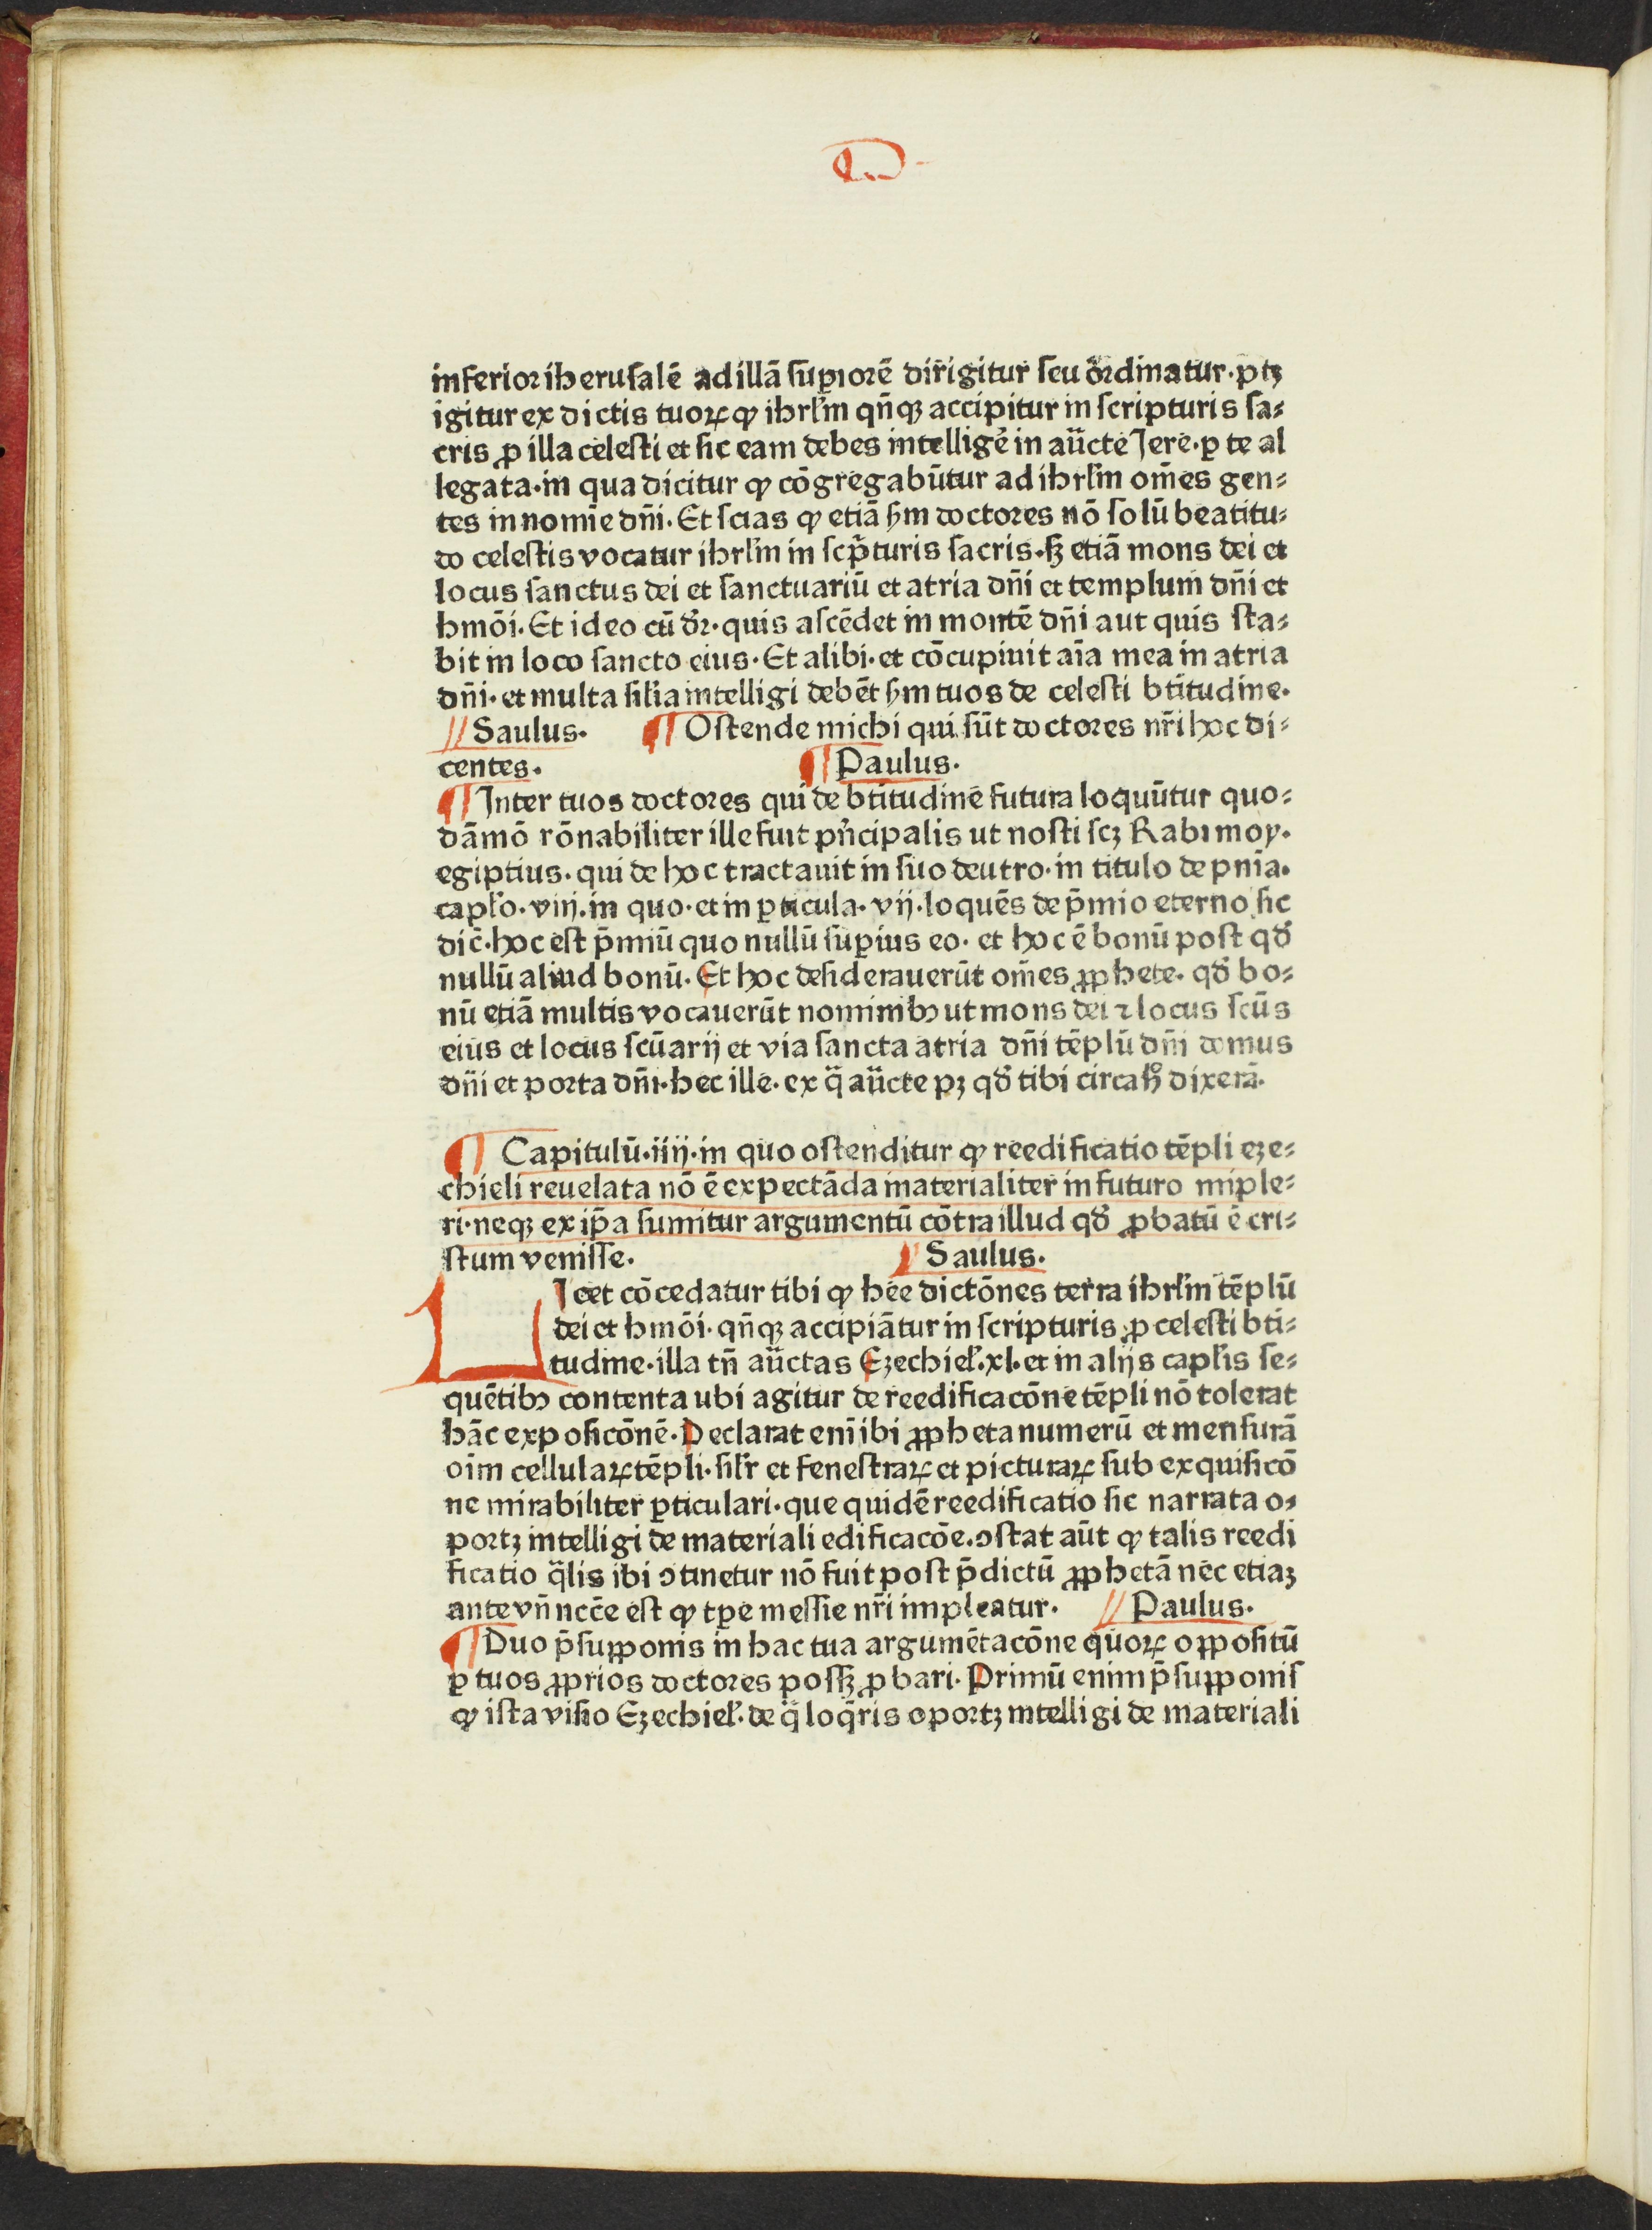 D
inferior iherusalē ad illā suꝑiorē dirigitur seu ordinatur· ptꝫ
igitur ex dictis tuoꝝ ꝙ ihrl̄m qn̄qꝫ accipitur in scripturis sa⸗
cris ꝓ illa celesti et sic eam debes intelligē in auc̄te Jere· ꝑ te al
legata· in qua dicitur ꝙ cōgregabūtur ad ihrl̄m om̄es gen⸗
tes in nomīe dn̄i· Et scias ꝙ etiā ẜm doctores nō solū beatitu⸗
do celestis vocatur ihrl̄m in sc̄pturis sacris· sꝫ etiā mons dei et
locus sanctus dei et sanctuariū et atria dn̄i et templum dn̄i et
hmōi· Et ideo cū dr̄· quis ascēdet in montē dn̄i aut quis sta⸗
bit in loco sancto eius· Et alibi· et cōcupiuit aīa mea in atria
dn̄i· et multa sil̄ia intelligi debēt ẜm tuos de celesti bt̄itudine·
// Saulus· ¶ Ostende michi qui sūt doctores nr̄i hoc di⸗
centes· ¶ Paulus·
¶ Inter tuos doctores qui de bt̄itudine futura loquūtur quo⸗
dāmō rōnabiliter ille fuit pn̄cipalis ut nosti scꝫ Rabi moy·
egiptius· qui de hoc tractauit in suo deutro· in titulo de pnīa·
capl̄o· viij· in quo· et in ꝑticula· vij· loquēs de p̄mio eterno sic
dic̄· hoc est p̄miū quo nullū suꝑius eo· et hoc ē bonū post qd̄
nullū aliud bonū· Et hoc desiderauerūt om̄es ꝓphete· qd̄ bo⸗
nū etiā multis vocauerūt nominibꝫ ut mons dei ⁊ locus scūs
eius et locus scūarij et via sancta atria dn̄i tēplū dn̄i domus
dn̄i et porta dn̄i· hec ille· ex q̄ auc̄te pꝫ qd̄ tibi circa hͦ dixerā·
¶ Capitulū· iiij· in quo ostenditur ꝙ reedificatio tēpli eze⸗
chieli reuelata nō ē expectāda materialiter in futuro imple⸗
ri· neqꝫ ex ip̄a sumitur argumentū cōtra illud qd̄ ꝓbatū ē cri⸗
stum venisse· ¶ Saulus·
LIcet cōcedatur tibi ꝙ hee dictōnes terra ihrl̄m tēplū
dei et hmōi· qn̄qꝫ accipiātur in scripturis ꝓ celesti bt̄i⸗
tudine· illa tn̄ auc̄tas Ezechiel̄· xl· et in alijs capl̄is se⸗
quētibꝫ contenta ubi agitur de reedificacōne tēpli nō tolerat
hāc exposicōnē· Declarat enī ibi ꝓpheta numerū et mensurā
oīm cellulaꝝ tēpli· sil̄r et fenestraꝝ et picturaꝝ sub exquisicō
ne mirabiliter ꝑticulari· que quidē reedificatio sic narrata o⸗
portꝫ intelligi de materiali edificacōe· ꝯstat aūt ꝙ talis reedi
ficatio q̄lis ibi ꝯtinetur nō fuit post p̄dictū ꝓphetā nec etiaꝫ
ante vn̄ ncc̄e est ꝙ tꝑe messie nr̄i impleatur· // Paulus·
¶ Duo p̄supponis in hac tua argumētacōne quoꝝ oppositū
ꝑ tuos ꝓprios doctores possꝫ ꝓbari· Primū enim p̄supponis
ꝙ ista visio Ezechiel̄· de q̄ loq̄ris oportꝫ intelligi de materiali